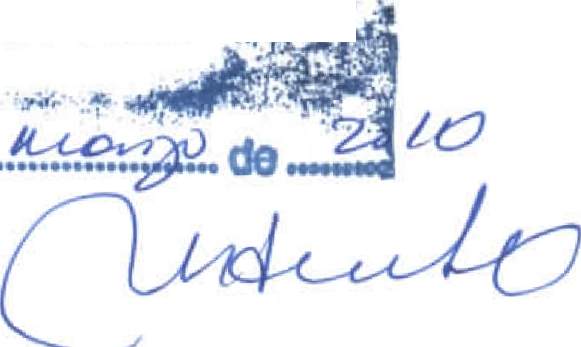 marzo de 2010